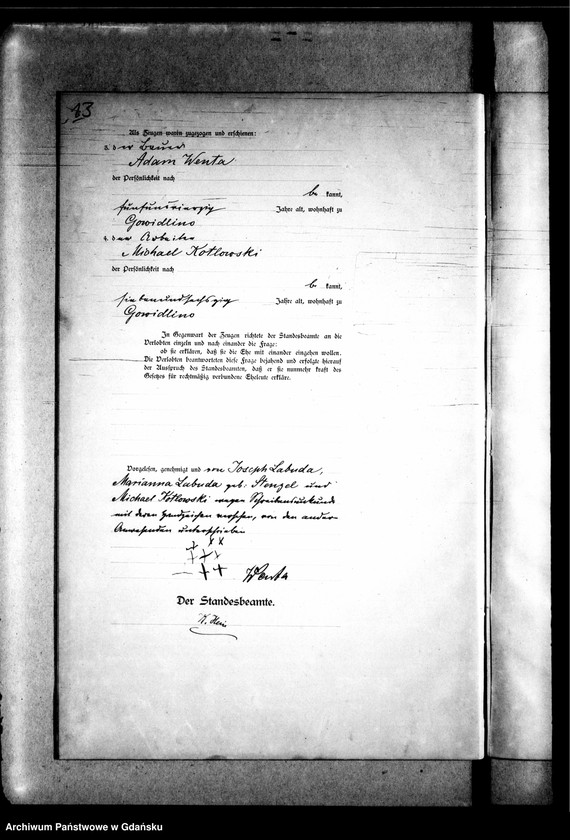 13
Als Zeugen waren zugezogen und erschienen:
3. der Bauer
Adam Wenta
der Persönlichkeit nach
be kannt,
fünfundvierzig Jahre alt, wohnhaft zu
Gowidlino
4. der Arbeiter
Michael Kotlowski
der Persönlichkeit nach
be kannt,
siebenundsechszig Jahre alt, wohnhaft zu
Gowidlino
In Gegenwart der Zeugen richtete der Standesbeamte an die
Verlobten einzeln und nach einander die Frage:
ob sie erklären, daß sie die Ehe mit einander eingehen wollen.
Die Verlobten beantworteten diese Frage bejahend und erfolgte hierauf
der Ausspruch des Standesbeamten, daß er sie nunmehr kraft des
Gesetzes für rechtmäßig verbundene Eheleute erkläre.
Vorgelesen, genehmigt und von Joseph Labuda,
Marianna Labuda geb. Stenzel und
Michael Kotlowski wegen Schreibensunkunde
mit deren Handzeichen versehen, von den anderen
Anwesenden unterschrieben
Wenta
Der Standesbeamte.
Archiwum Państwowe w Gdańsku